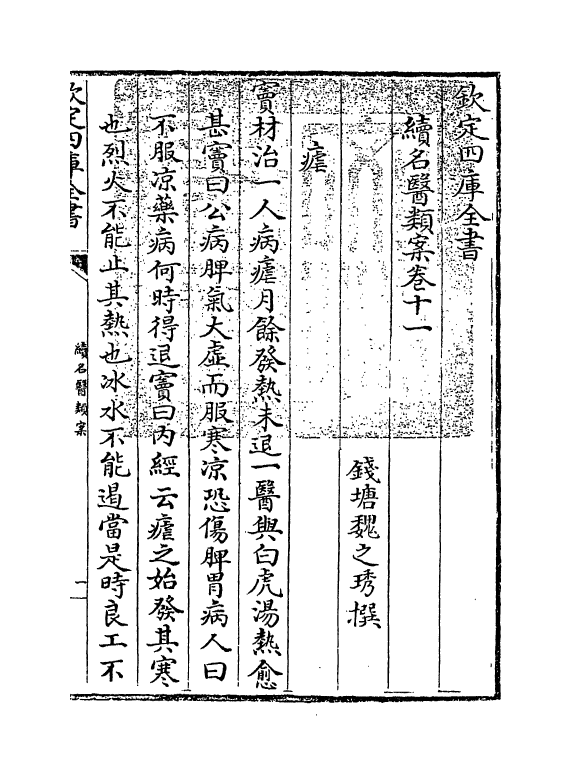 欽定四庫全書
續名醫類案卷十一
錢塘魏之琇撰
瘧
竇材治一人病瘧月餘發熱未退一醫與白虎湯熱愈
甚竇曰公病脾氣大虛而服寒凉恐傷脾胃病人曰
不服凉藥病何時得退竇曰内經云瘧之始發其寒
也烈火不能止其熱也冰水不能遏當是時良工不
欽定四庫全書
續名醫類案